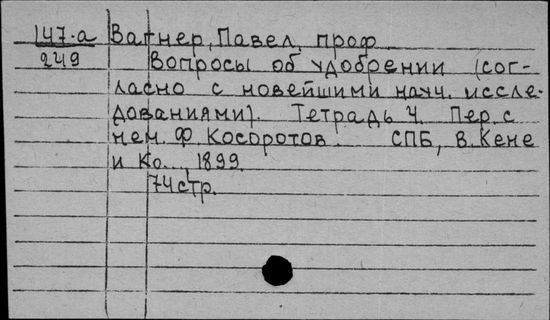 147-а Вагнер, Павел, проф.
249 Вопросы об удобрении (сог-
ласно с новейшими научн. иссле-
дованиями). Тетрадь 4. Пер. с
нем. Ф. Косоротов. СПБ, В. Кене
и Ко., 1899.
74 стр.